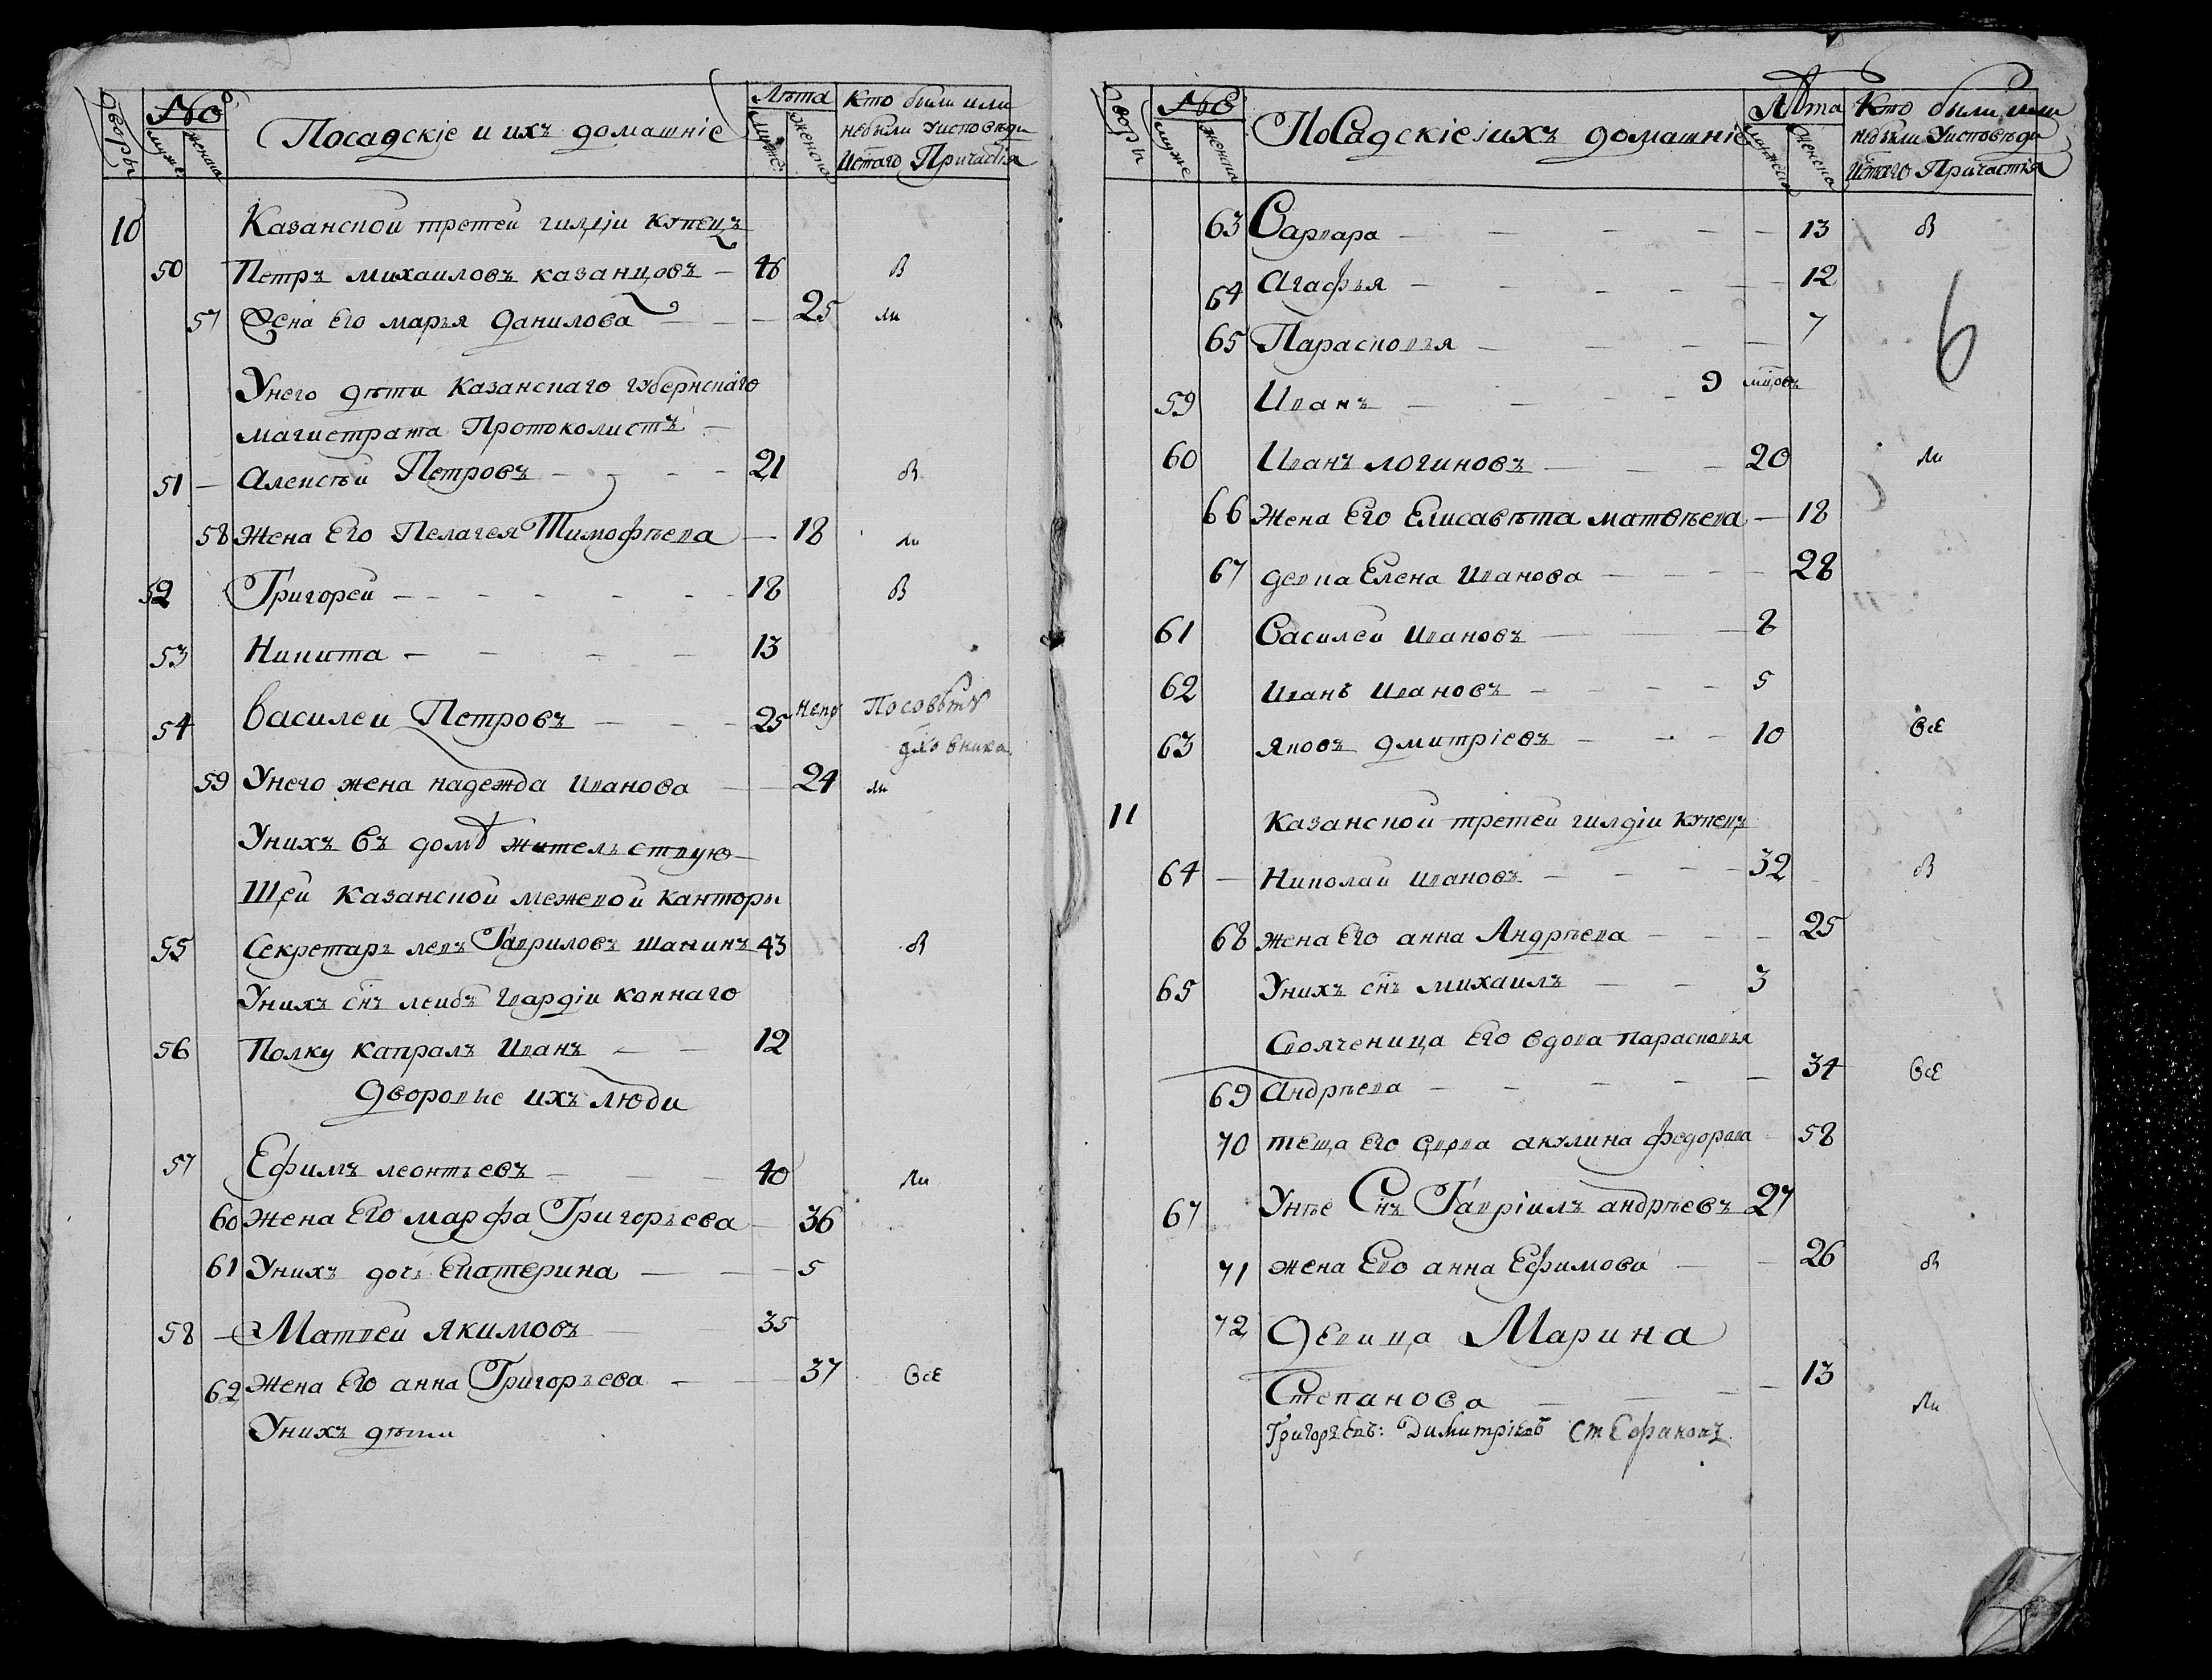 Дворы № Посадскіе и ихъ домашніе Лѣта Кто были или
муже. женска муже: женска небыли уисповѣди
Истаго Причастія
10 Казанской третей гилдіи купецъ
50 Петръ михаиловъ казанцовъ 46 в
57 Жена его марья данилова 25 ли
Унего дѣти казанскаго губернскаго
магистрата Протоколистъ
51 Алексѣй Петровъ 21 в
58 Жена Его Пелагея Тимофѣева 18 ли
52 Григорей 18 в
53 Никита 13
54 Василей Петровъ 25 непо Посовѣту
духовника
59 Унего жена надежда Иванова 24 ли
Унихъ въ домѣ жительствую
щей казанской межевой канторы
55 Секретарь левъ Гавриловъ шанинъ 43 в
Унихъ снъ леибъ гвардіи коннаго
56 Полку капралъ Иванъ 12
Дворовые ихъ люди
57 Ефимъ леонтьевъ 40 ли
60 жена Его марфа Григорьева 36
61 Унихъ дочь Екатерина 5
58 Матвей Якимовъ 35
62 жена Его анна Григорьева 37 всѣ
Унихъ дѣти
Дворы № Посадскіе ихъ домашніе Лѣта Кто были или
муже женска мужеска женска небыли Уисповѣди
Истаго Причастія
63 Варвара 13 в
64 Агафья 12
6
65 Парасковья 7
59 Иванъ 9 мцовъ
60 Иванъ логиновъ 20 ли
66 Жена Его Елисавѣта матвѣева 18
67 девка Елена Иванова 28
61 Василей Ивановъ 8
62 Иванъ Ивановъ 5
63 Яковъ дмитріевъ 10 всѣ
11 Казанской третей гилдіи купецъ
64 Николай Ивановъ 32 в
68 жена Его анна Андрѣева 25
65 Унихъ снъ михаилъ 3
Свояченица Его вдова парасковья
69 Андрѣева 34 всѣ
70 теща Его вдова акулина федорова 58
67 Унѣе Снъ Гавріилъ андрѣевъ 27
71 жена Ево анна Ефимова 26 в
72 Девица Марина
Степанова 13 ли
Григорьевъ: Димитріевъ Стефановъ